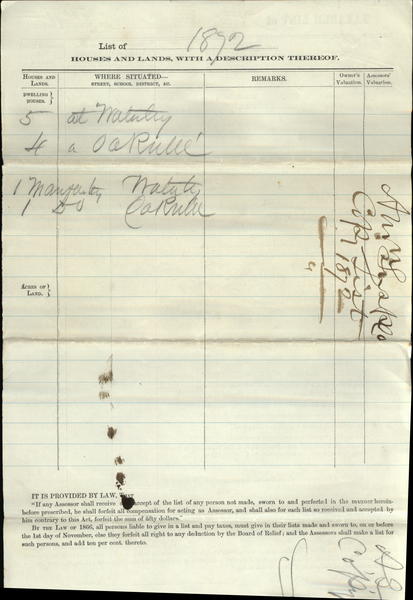 List of 1872
HOUSES AND LANDS, WITH A DESCRIPTION THEREOF.
HOUSES AND LANDS.
WHERE SITUATED—
STREET, SCHOOL DISTRICT, &C.
REMARKS.
Owner's Valuation.
Assessors' Valuation.
DWELLING HOUSES.
5 at
4 a Oakville
1
1 Do Oakville
ACRES OF LAND.
Copy List
1872
IT IS PROVIDED BY LAW, THAT
"If any Assessor shall receive or accept of the list of any person not made, sworn to and perfected in the manner herein-
before prescribed, he shall forfeit all compensation for acting as Assessor, and shall also for each list so received and accepted by
him contrary to this Act, forfeit the sum of fifty dollars."
BY THE LAW OF 1866, all persons liable to give in a list and pay taxes, must give in their lists made and sworn to, on or before
the 1st day of November, else they forfeit all right to any deduction by the Board of Relief; and the Assessors shall make a list for
such persons, and add ten per cent. thereto.
Copy